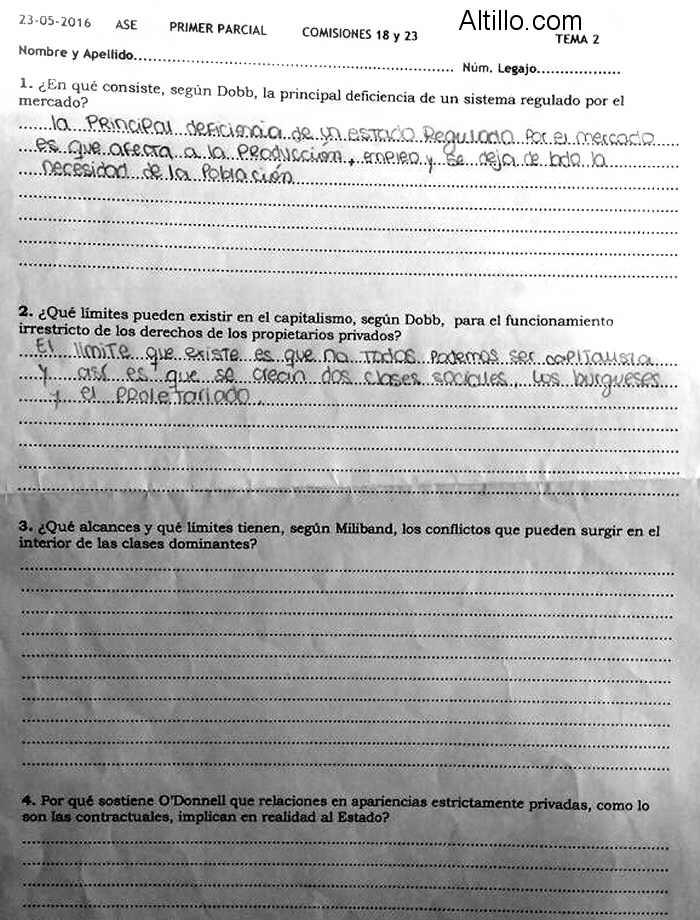 Altillo.com
23-05-2016 ASE PRIMER PARCIAL COMISIONES 18 y 23 TEMA 2
Nombre y Apellido.................................................................................... Núm. Legajo..................
1. ¿En qué consiste, según Dobb, la principal deficiencia de un sistema regulado por el
mercado?
la principal deficiencia de un estado regulado por el mercado
es que afecta a la producción, empleo y se deja de lado la
necesidad de la población
2. ¿Qué límites pueden existir en el capitalismo, según Dobb, para el funcionamiento
irrestricto de los derechos de los propietarios privados?
El limite que existe es que no todos podemos ser capitalista
y así es que se crean dos clases sociales, los burgueses
y el proletariado.
3. ¿Qué alcances y qué límites tienen, según Miliband, los conflictos que pueden surgir en el
interior de las clases dominantes?
4. Por qué sostiene O'Donnell que relaciones en apariencias estrictamente privadas, como lo
son las contractuales, implican en realidad al Estado?